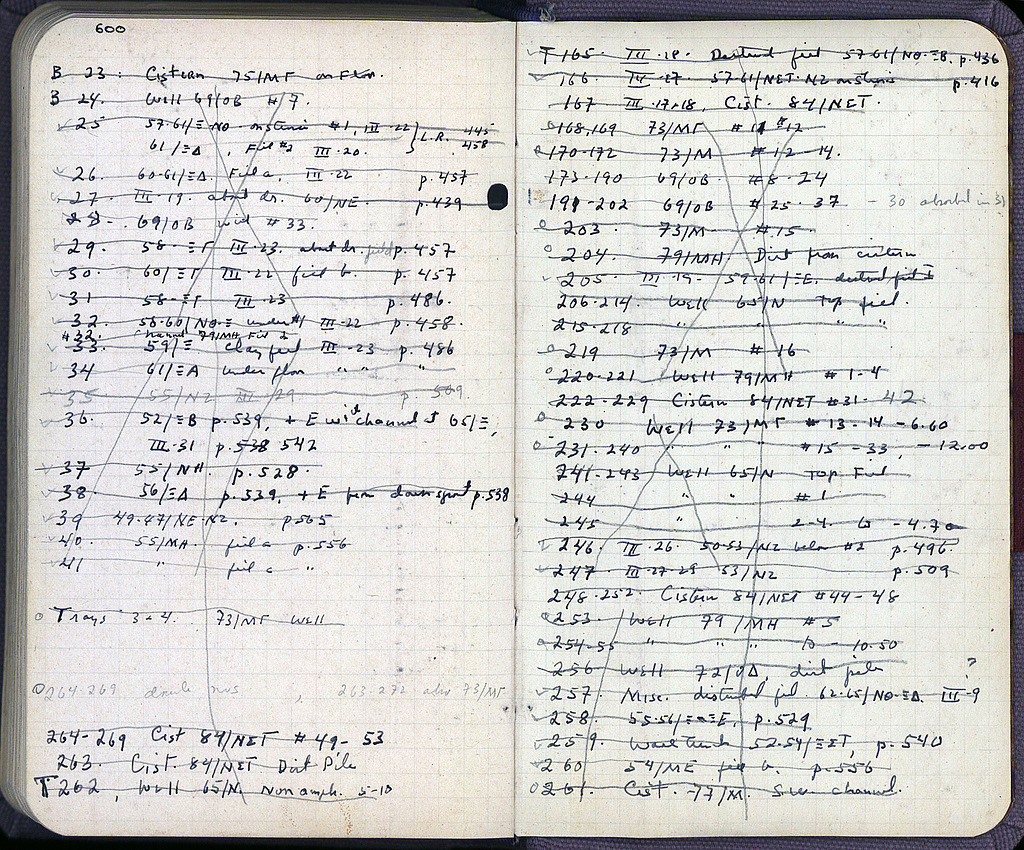 600
B 23: Cistern 75/ΜΓ on Floor.
B 24. Well 69/ΟΒ #7.
25 57-61/Ξ ΝΟ #1, III·22 L.R. 445
61/ΞΔ, Fill #2 III·20. 458
26. 60-61/ΞΔ. Fill a, III·22 p.457
27. III·19. about dr. 60/ΝΕ p.439
28. 69/ΟΒ well #33.
29 58-ΞΓ III·23. about dr. p.457
30. 60/ΞΓ III·22 fill b. p.457
31 58-ΞΓ III·23 p.486.
32. 56-60/ΝΟ-Ξ under #1 III·22 p.458.
#32. Channel 79/ΜΗ Fill 2
33. 59/Ξ Clay fill III·23 p.486
34 61/ΞΑ under floor " " "
35 55/ΝΖ III/29 p.509
36. 52/ΞΒ p.539, + E wi channel 65/Ξ,
III·31 p.538 542
37 55/ΝΗ. p.528.
38. 56/ΞΔ p.539, + E from down spout p.538
39 49-47/ΝΕ-ΝΖ. p.565
40. 55/ΜΗ fill a p.556
41 " fill c "
Trays 3-4. 73/ΜΓ Well
264-269 double nos, 263-272 also 73/ΜΓ
264-269 Cist 84/ΝΕΤ #49-53
263. Cist. 84/ΝΕΤ Dirt Pile
T 262, Well 65/Ν. Non amph. 5-10
T 165. III·18. Disturbed fill 57-61/ΝΟ-ΞΒ. p.436
166. IV·27 57-61/ΝΕΤ-ΝΖ p.416
167 III·17+18, Cist. 84/ΝΕΤ.
168,169 73/ΜΓ #11 #12
170-172 73/Μ #12-14.
173-190 69/ΟΒ #8-24
191-202 69/ΟΒ #25-37 - 30 absorbed in 31
203 73/Μ #15
204. 79/ΜΗ Dirt from cistern
205 III·19- 59-61/ΞΕ.
206-214. Well 65/Ν Top fill.
215-218 " " " "
219 73/Μ #16
220-221 Well 79/ΜΗ #1-4
222-229 Cistern 84/ΝΕΤ #31-42
230 Well 73/ΜΓ #13-14-6.60
231-240 " " #15-33, -12.00
241-243 Well 65/Ν Top Fill
244 " " #1
245 " 2-4. to -4.70
246 III·26. 50-53/ΝΖ below #2 p.496.
247 III·27-29 53/ΝΖ p.509
248-252. Cistern 84/ΝΕΤ #44-48
253 Well 79/ΜΗ #5
254-55 " " to -10.50
256 Well 72/ΟΔ, dirt pile ?
257. Misc. disturbed fill 62-65/ΝΟ-ΞΔ. III-9
258. 55-56/ΞΕ, p.529
259. 52-54/ΞΓ, p.540
260 54/ΜΕ fill b. p.556
261. Cist. 77/Μ. channel.